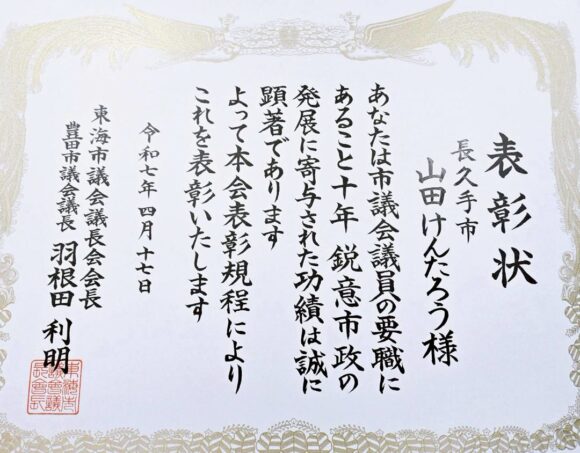 表彰状
長久手市
山田けんたろう様
あなたは市議会議員の要職に
あること十年 鋭意市政の
発展に寄与された功績は誠に
顕著であります
よって本会表彰規程により
これを表彰いたします
令和七年四月十七日
東海市議会議長会会長
豊田市議会議長 羽根田利明
東海市
議会議
長会長